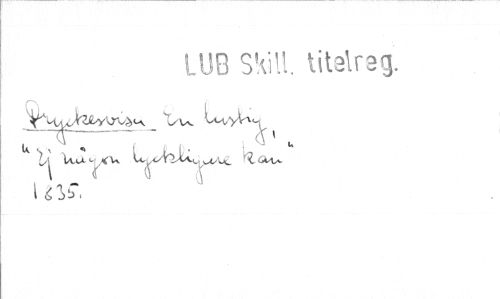 LUB Skill. titelreg.
Dryckesvisa En lustig,
"Ej någon lyckligare kan"
1835.